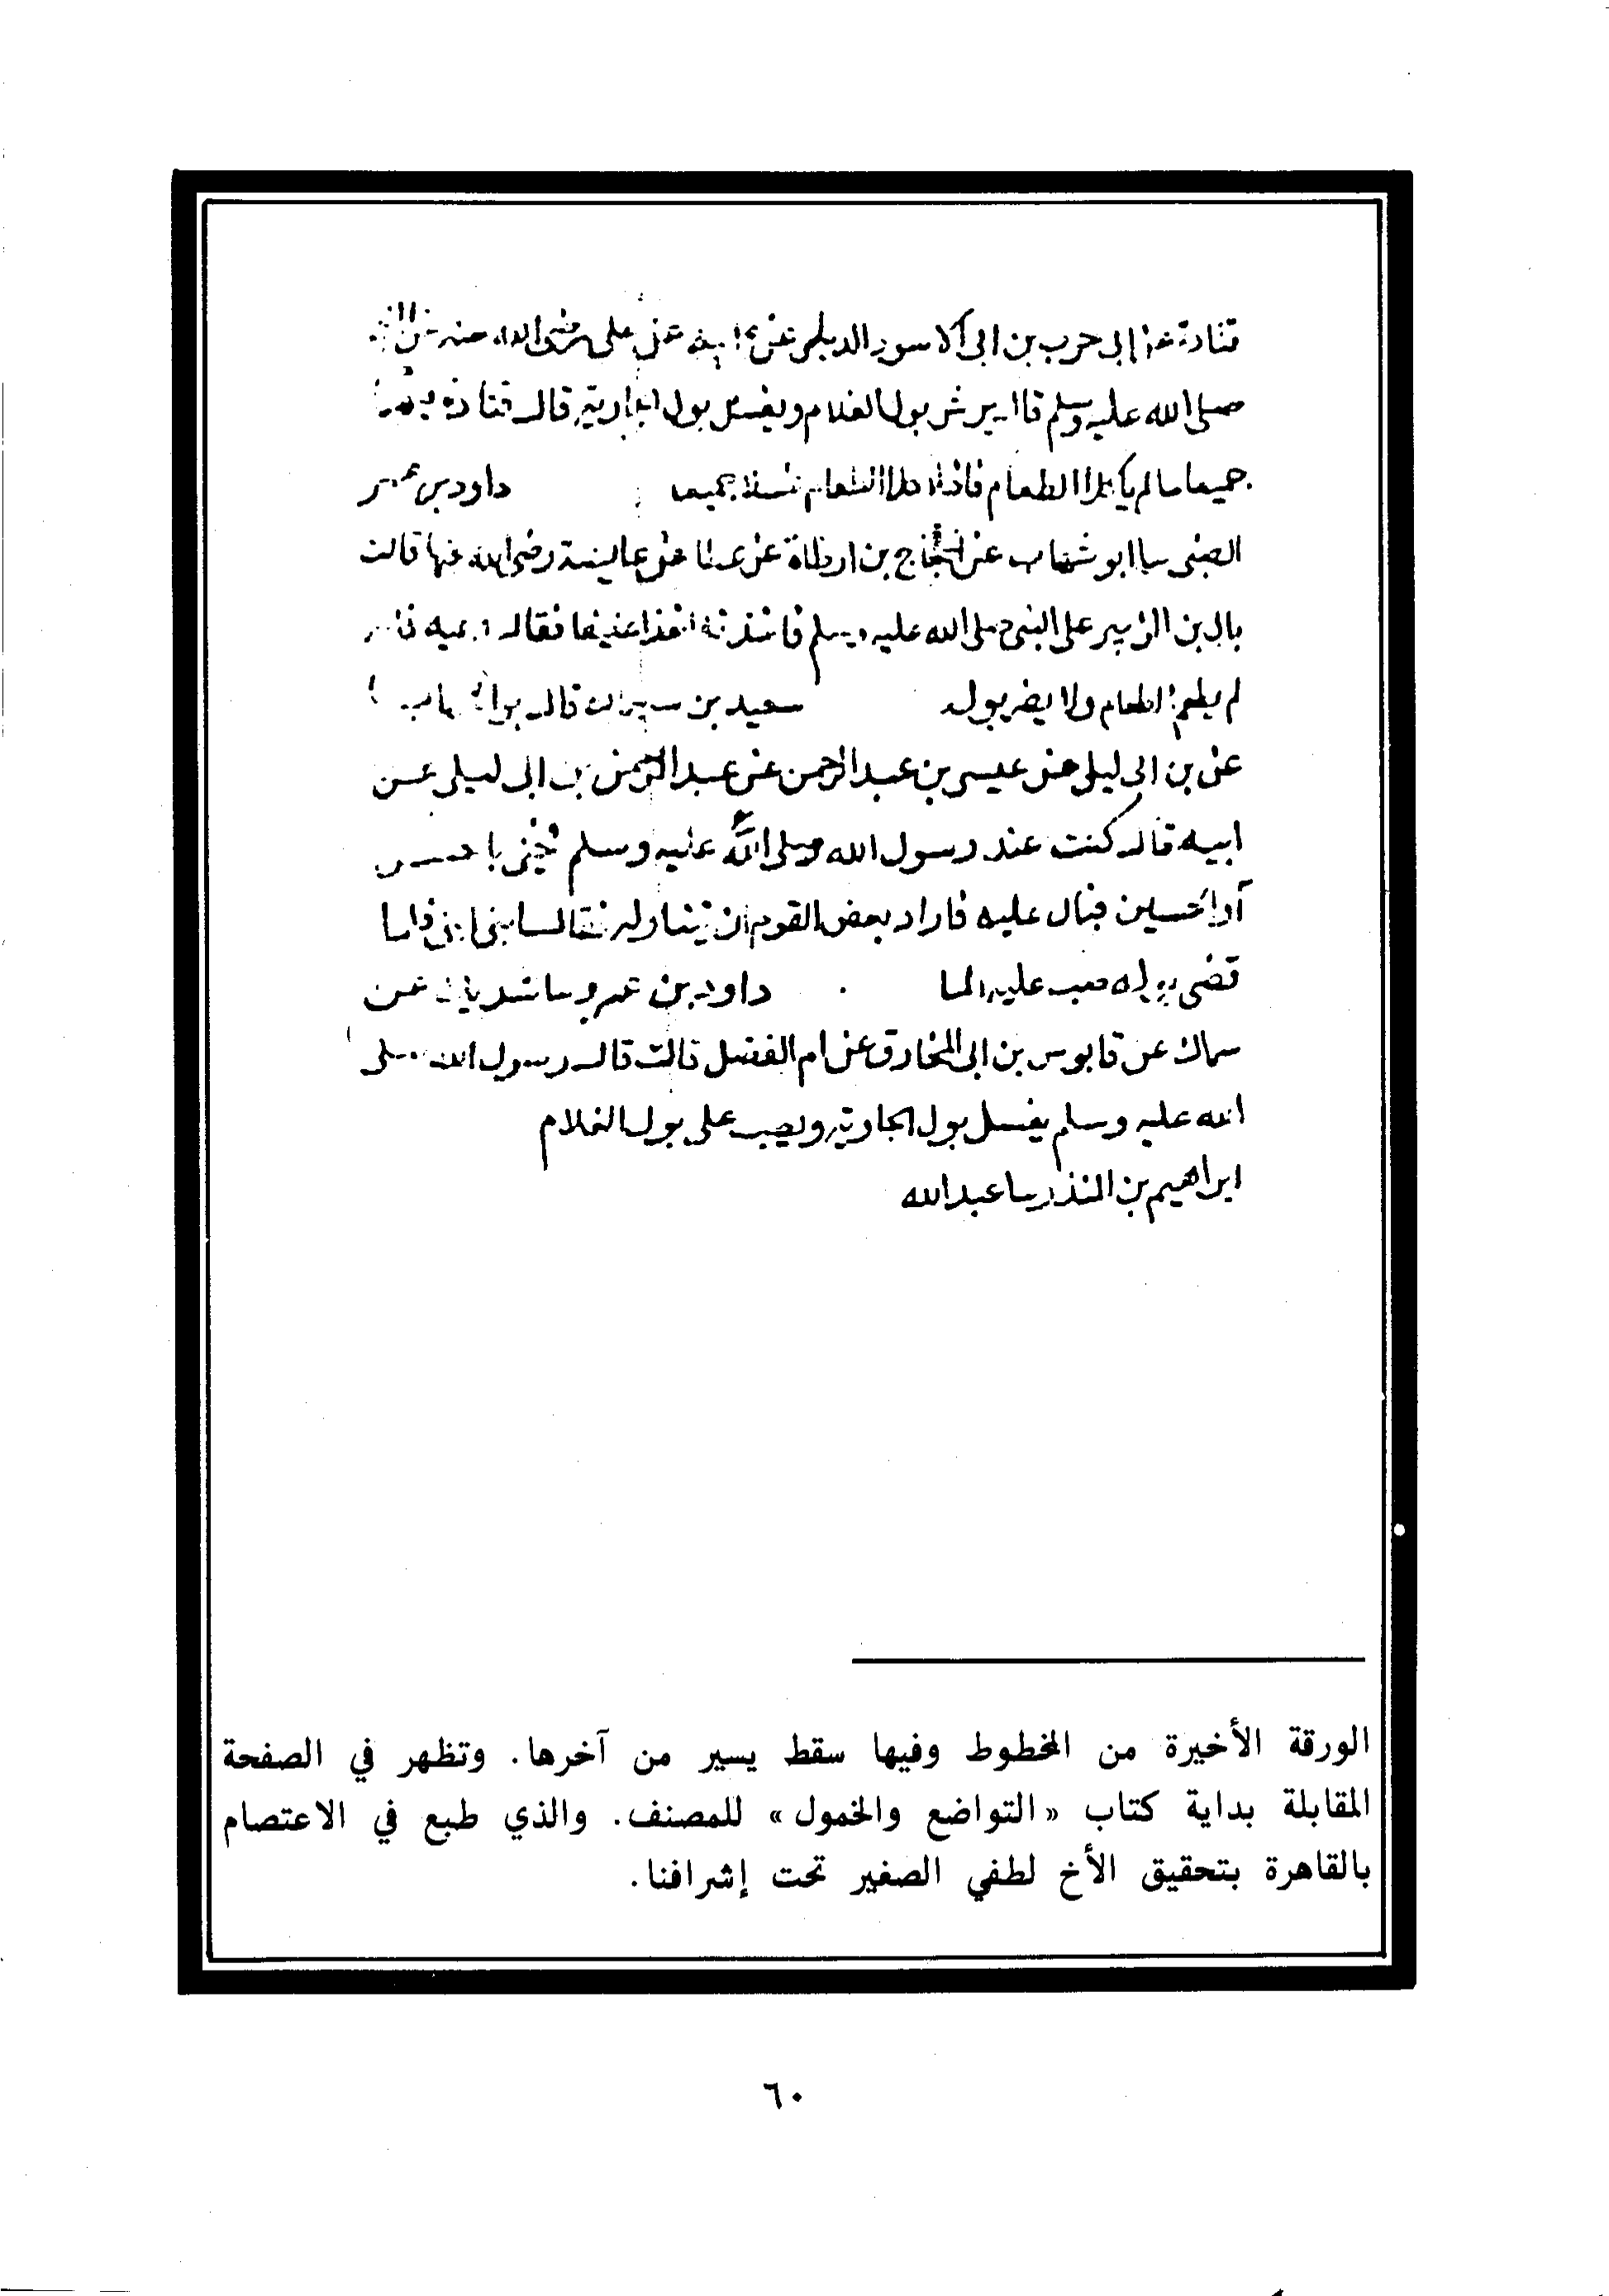 قتادة عن ابى حرب بن ابى الاسود الديلى عن ابيه عن على رضى الله عنه عن
صلى الله عليه وسلم قال يرش بول الغلام ويغسل بول الجارية قال قتادة
جميعا ما لم ياكلا الطعام فاذا اكلا الطعام غسلا جميعا داود بن عمر
الضبى سا ابو شهاب عن الحجاج بن ارطاة عن عطا عن عايشة رضى الله عنها قالت
بال بن الزبير على النبى صلى الله عليه وسلم فاخذته اخذا عنيفا فقال دعيه
لم يطعم الطعام ولا يضر بوله سعيد بن قال
عن بن ابى ليلى عن عيسى بن عبد الرحمن عن عبد الرحمن بن ابى ليلى عن
ابيه قال كنت عند رسول الله صلى الله عليه وسلم
او الحسين فبال عليه فاراد بعض القوم ان يتناوله فقال ابنى ابنى فلما
قضى بوله صب عليه الما داود بن عمرو سا شريك عن
سماك عن قابوس بن ابى المخارق عن ام الفضل قالت قال رسول الله صلى
الله عليه وسلم يغسل بول الجارية ويصب على بول الغلام
ابراهيم بن المنذر سا عبد الله
الورقة الأخيرة من المخطوط وفيها سقط يسير من آخرها. وتظهر في الصفحة
المقابلة بداية كتاب «التواضع والخمول» للمصنف. والذي طبع في الاعتصام
بالقاهرة بتحقيق الأخ لطفي الصغير تحت إشرافنا.
٦٠